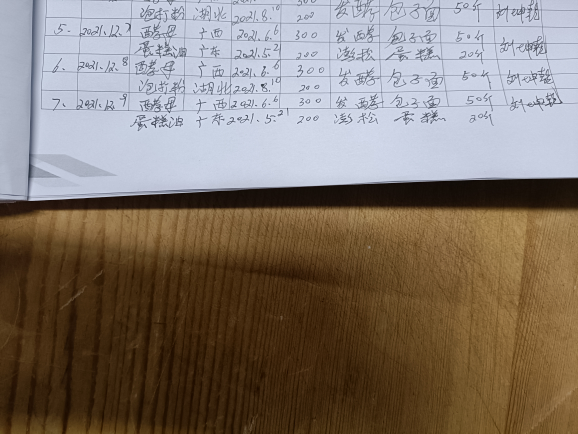 泡打粉 湖北 2021.8.10 200 发酵 包子面 50斤
5. 2021.12.7 酵母 广西 2021.6.6 300 发酵 包子面 50斤
蛋糕油 广东 2021.5.21 200 澎松 蛋糕 20斤
6. 2021.12.8 酵母 广西 2021.6.6 300 发酵 包子面 50斤
泡打粉 湖北 2021.8.10 200
7. 2021.12.9 酵母 广西 2021.6.6 300 发酵 包子面 50斤
蛋糕油 广东 2021.5.21 200 澎松 蛋糕 20斤